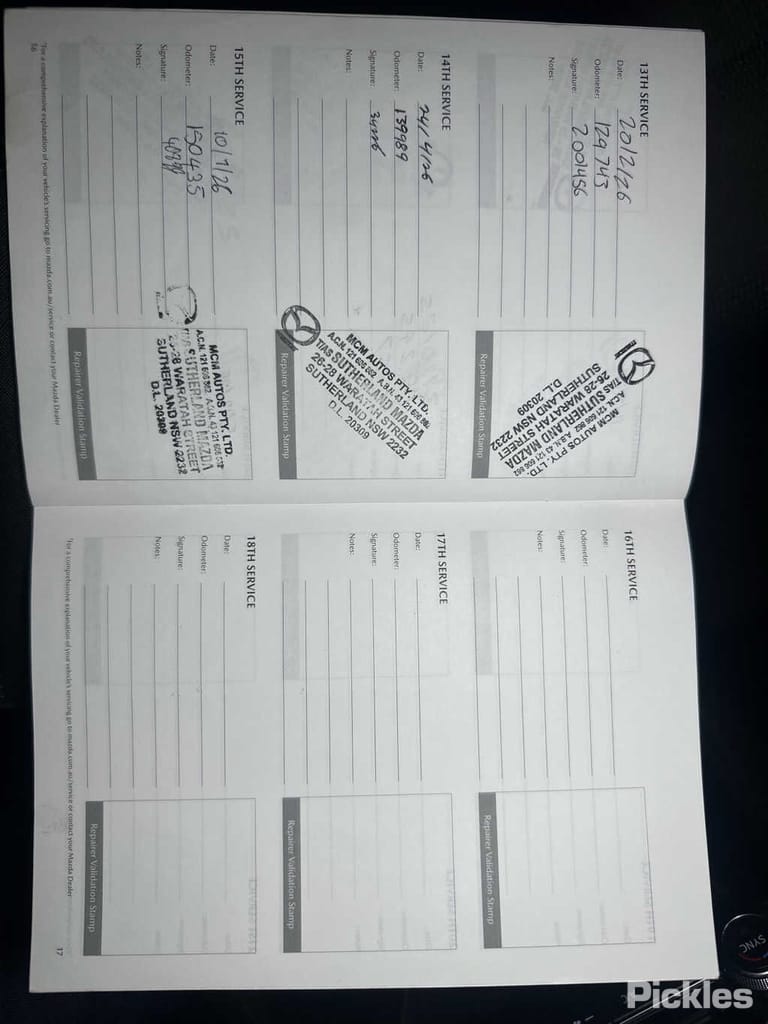 13TH SERVICE
Date: 20/2/26
Odometer: 129743
Signature: 2001456
Notes:
MCM AUTOS PTY. LTD.
A.C.N. 121 606 862 A.B.N. 43 121 606 862
T/AS SUTHERLAND MAZDA
26-28 WARATAH STREET
SUTHERLAND NSW 2232
D.L. 20309
Repairer Validation Stamp
14TH SERVICE
Date: 24/4/26
Odometer: 139989
Signature:
Notes:
MCM AUTOS PTY. LTD.
A.C.N. 121 606 862 A.B.N. 43 121 606 862
T/AS SUTHERLAND MAZDA
26-28 WARATAH STREET
SUTHERLAND NSW 2232
D.L. 20309
Repairer Validation Stamp
15TH SERVICE
Date: 10/7/26
Odometer: 150435
Signature:
Notes:
MCM AUTOS PTY. LTD.
T/AS SUTHERLAND MAZDA
26-28 WARATAH STREET
SUTHERLAND NSW 2232
D.L. 20309
Repairer Validation Stamp
*For a comprehensive explanation of your vehicle's servicing go to mazda.com.au/service or contact your Mazda Dealer
16TH SERVICE
Date:
Odometer:
Signature:
Notes:
Repairer Validation Stamp
17TH SERVICE
Date:
Odometer:
Signature:
Notes:
Repairer Validation Stamp
18TH SERVICE
Date:
Odometer:
Signature:
Notes:
Repairer Validation Stamp
*For a comprehensive explanation of your vehicle's servicing go to mazda.com.au/service or contact your Mazda Dealer
17
SYNC
Pickles